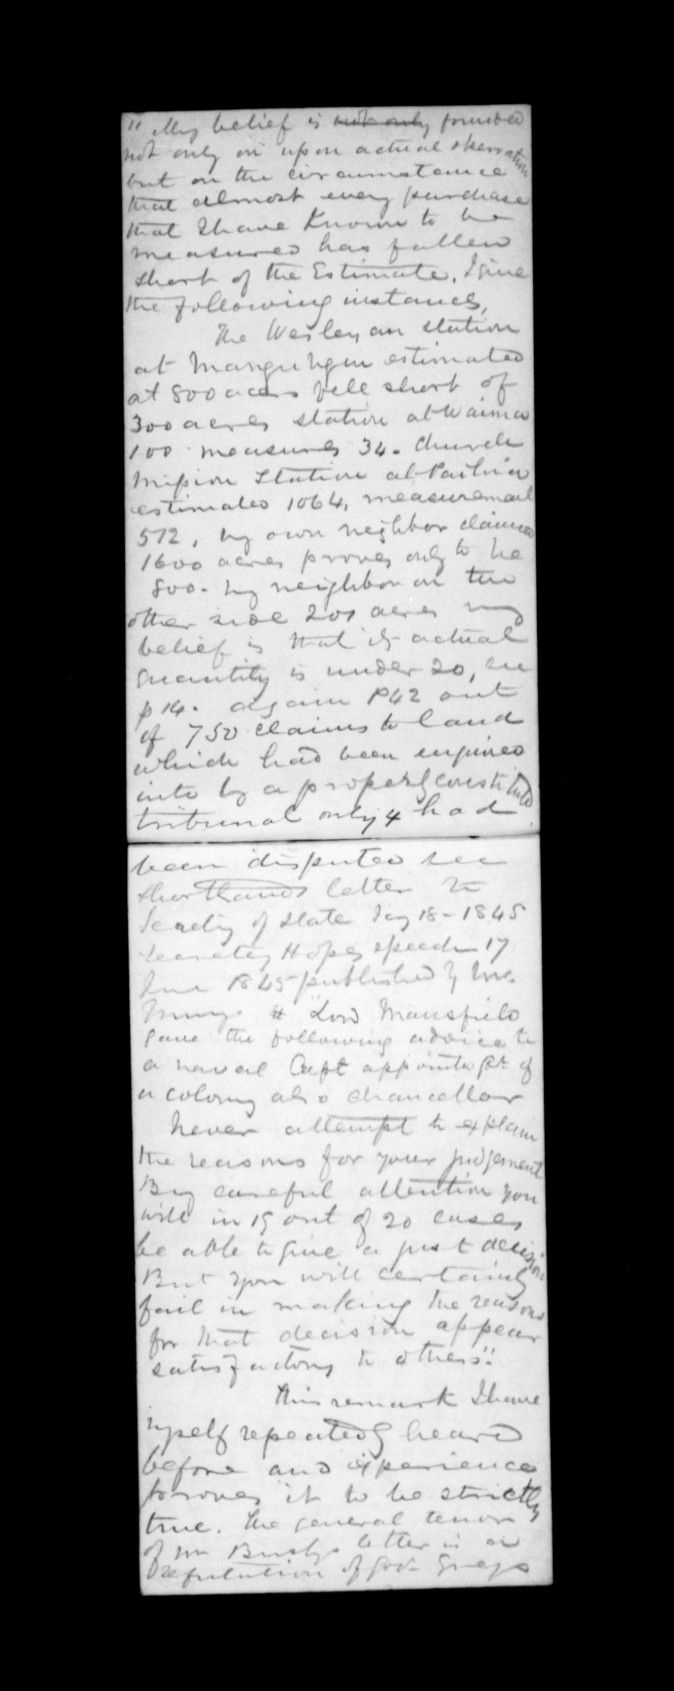 " My belief is not only founded
not only on upon actual observation
but on the circumstance
that almost every purchase
that I have Known to be
measured has fallen
short of the Estimate. I give
the following instances,
The Wesleyan station
at Mangungu estimated
at 800 acres fell short of
300 acres station at Waima
100 measures 34. Church
Mission Station at Paihia
estimated 1064, measurement
512, my own neighbor claimed
1600 acres proves only to be
800. my neighbor on the
other side 201 acres my
belief is that its actual
quantity is under 20, see
p 14. again P42 out
of 750 claims to land
which had been enquired
into by a properly constituted
tribunal only 4 had
been disputed see
Shortlands letter to
Secretary of State 18 - 1845
Secretary Hopes speech 17
June 1845 published by Mr
# "Lord Mansfield
gave the following advice to
a naval Capt appointed Gt of
a colony also chancellor
Never attempt to explain
the reasons for your judgement
By careful attention you
will in 19 out of 20 cases
be able to give a just decision
But you will certainly
fail in making the reasons
for that decision appear
satisfactory to others".
This remark I have
myself repeatedly heard
before and experience
proves it to be strictly
true. The general tenor
of Mr Busbys letter is a
Refutation of Govr Greys